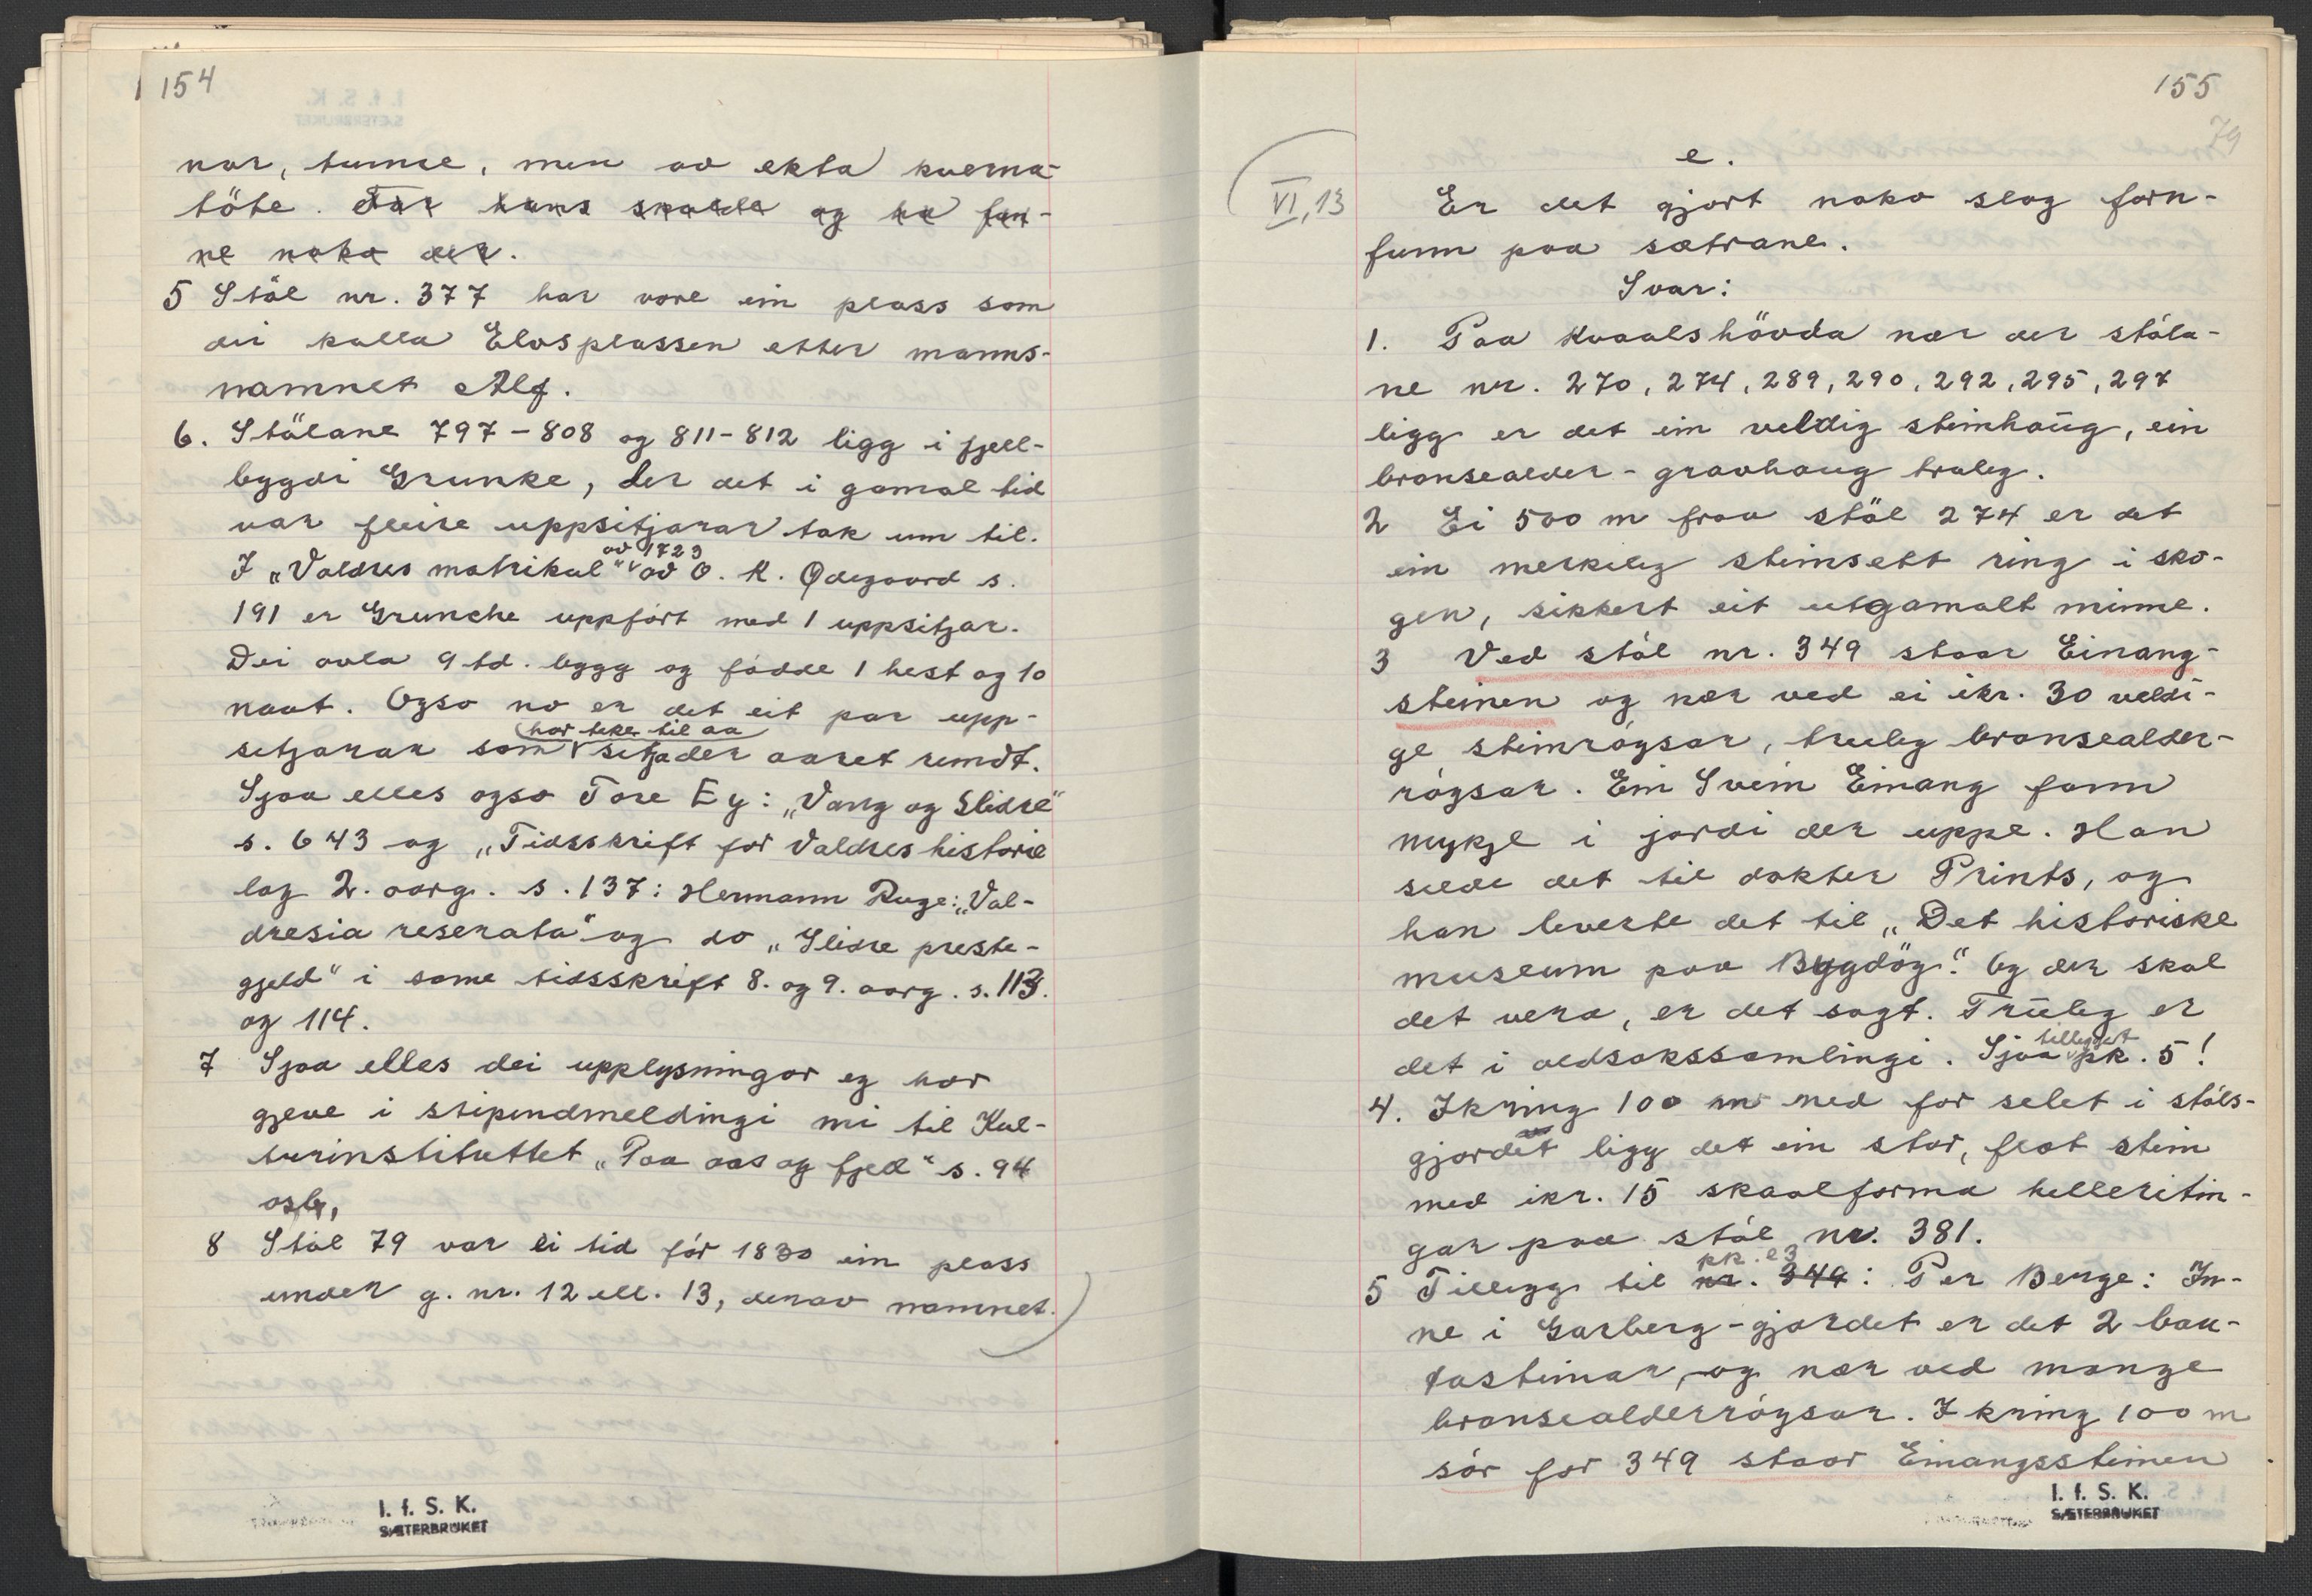 154
nar, tunne, men av ekta kverna-
töte. Far hans skulde og ha fun-
ne noko der.
5 Stöl nr. 377 har vore ein plass som
dei kalla Elvsplassen etter manns-
namnet Alf.
6. Stölane 797-808 og 811-812 ligg i fjell-
bygdi Grunke, der det i gamal tid
var fleire uppsitjarar tak um til.
av 1723
I „Valdres matrikul" av O. K. Ødegaard s.
191 er Grunche uppfört med 1 uppsitjar.
Dei avla 9 td. bygg og födde 1 hest og 10
naut. Ogso no er det eit par upp-
har teke til aa
sitjarar som sitja der aaret rundt.
Sjaa elles ogso Tore Ey: „Vang og Slidre"
s. 643 og „Tidsskrift for Valdres historie
lag 2. aarg. s. 137: Hermann Ruge: „Val-
dresia reserata" og do „Slidre preste-
gjeld" i same tidsskrift 8. og 9. aarg. s. 113.
og 114.
7 Sjaa elles dei upplysningar eg har
gjeve i stipendmeldingi mi til Kul-
turinstituttet „Paa aas og fjell" s. 94
osb,
8 Stöl 79 var ei tid för 1830 ein plass
under g. nr. 12 ell. 13, derav namnet.
I. f. S. K.
SÆTERBRUKET
155
79
VI, 13
e.
Er det gjort noko slag forn-
funn paa sætrane.
Svar:
1. Paa Kvaalshövda nær der stöla-
ne nr. 270, 274, 289, 290, 292, 295, 297
ligg er det ein veldig steinhaug, ein
bronsealder-gravhaug truleg.
2 Ei 500 m fraa stöl 274 er det
ein merkeleg steinsett ring i sko-
gen, sikkert eit utgamalt minne.
3 Ved stöl nr. 349 staar Einang-
steinen og nær ved ei ikr. 30 veldi-
ge steinröysar, truleg bronsealder-
röysar. Ein Svein Einang fann
mykje i jordi der uppe. Han
selde det til dokter Prints, og
han leverte det til „Det historiske
museum paa Bygdöy." Og der skal
det vera, er det sagt. Truleg er
tillegget
det i oldsakssamlingi. Sjaa pk. 5!
4. Ikring 100 m ned for selet i stöls-
gjordet ligg det ein stor, flat stein
med ikr. 15 skaalforma helleritin-
gar paa stöl nr. 381.
pk. e3
5 Tillegg til nr. 349: Per Berge: In-
ne i Garberg-gjordet er det 2 bau-
tasteinar, og nær ved mange
bronsealderröysar. Ikring 100 m
sör for 349 staar Einangssteinen
I. f. S. K.
SÆTERBRUKET